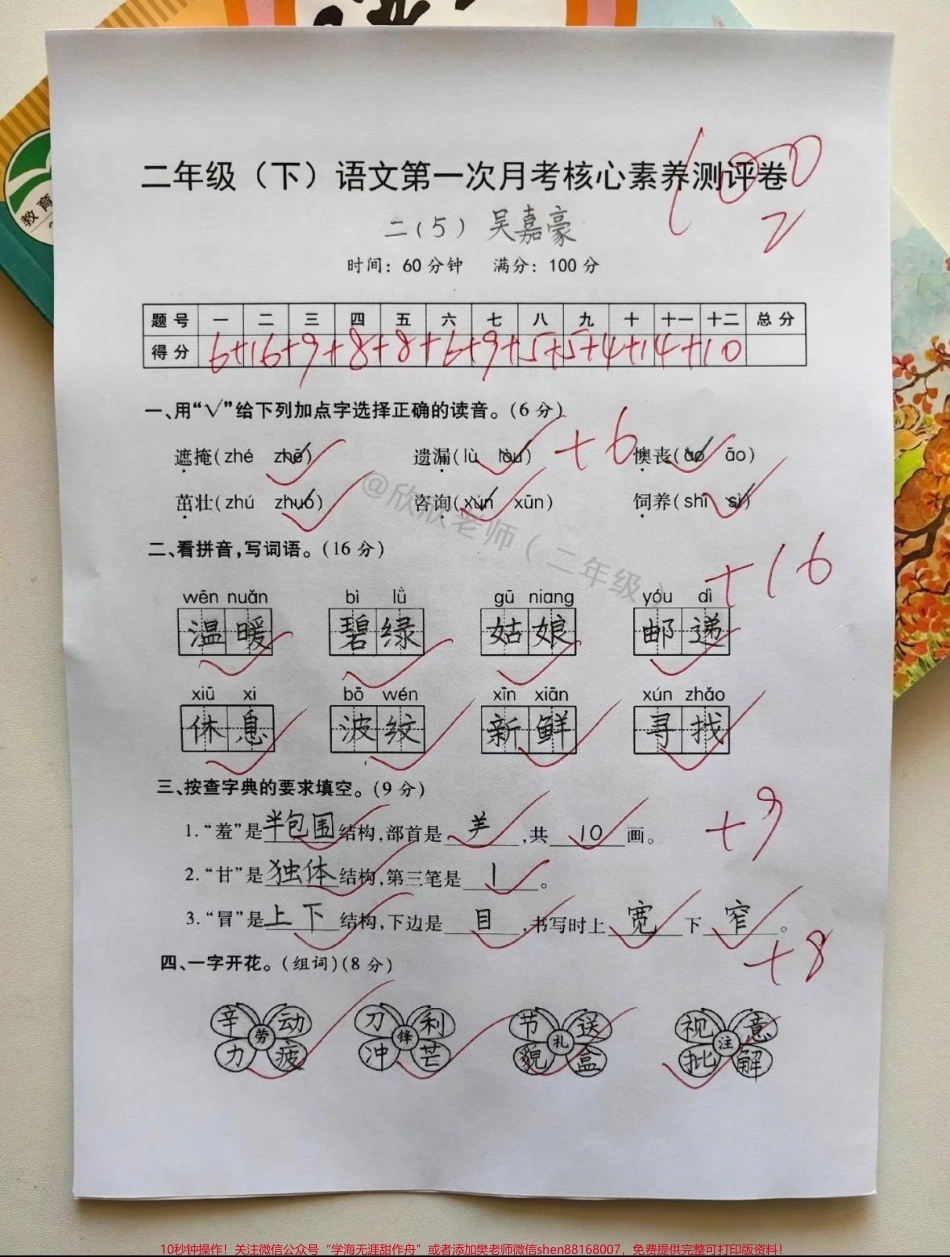 教育
二年级（下）语文第一次月考核心素养测评卷
100
二（5） 吴嘉豪
时间：60分钟 满分：100分
题号 一 二 三 四 五 六 七 八 九 十 十一 十二 总分
得分 6+16+9+8+8+6+9+5+5+4+14+10
一、用“√”给下列加点字选择正确的读音。(6分) +6
遮掩(zhé zhē) 遗漏(lù lòu) 懊丧(ào āo)
茁壮(zhú zhuó) 咨询(xún xūn) 饲养(shì sì)
@欣欣老师（二年级）
二、看拼音,写词语。(16分) +16
wēn nuǎn bì lǜ gū niang yóu dì
温暖 碧绿 姑娘 邮递
xiū xi bō wén xīn xiān xún zhǎo
休息 波纹 新鲜 寻找
三、按查字典的要求填空。(9分) +9
1.“羞”是半包围结构,部首是羊,共10画。
2.“甘”是独体结构,第三笔是丨。
3.“冒”是上下结构,下边是目,书写时上宽下窄。
四、一字开花。(组词)(8分) +8
辛 动 刀 利 节 送 视 意
劳 锋 礼 注
力 疲 冲 芒 貌 盒 批 解
10秒钟操作！关注微信公众号“学海无涯甜作舟”或者添加樊老师微信shen88168007，免费提供完整可打印版资料！